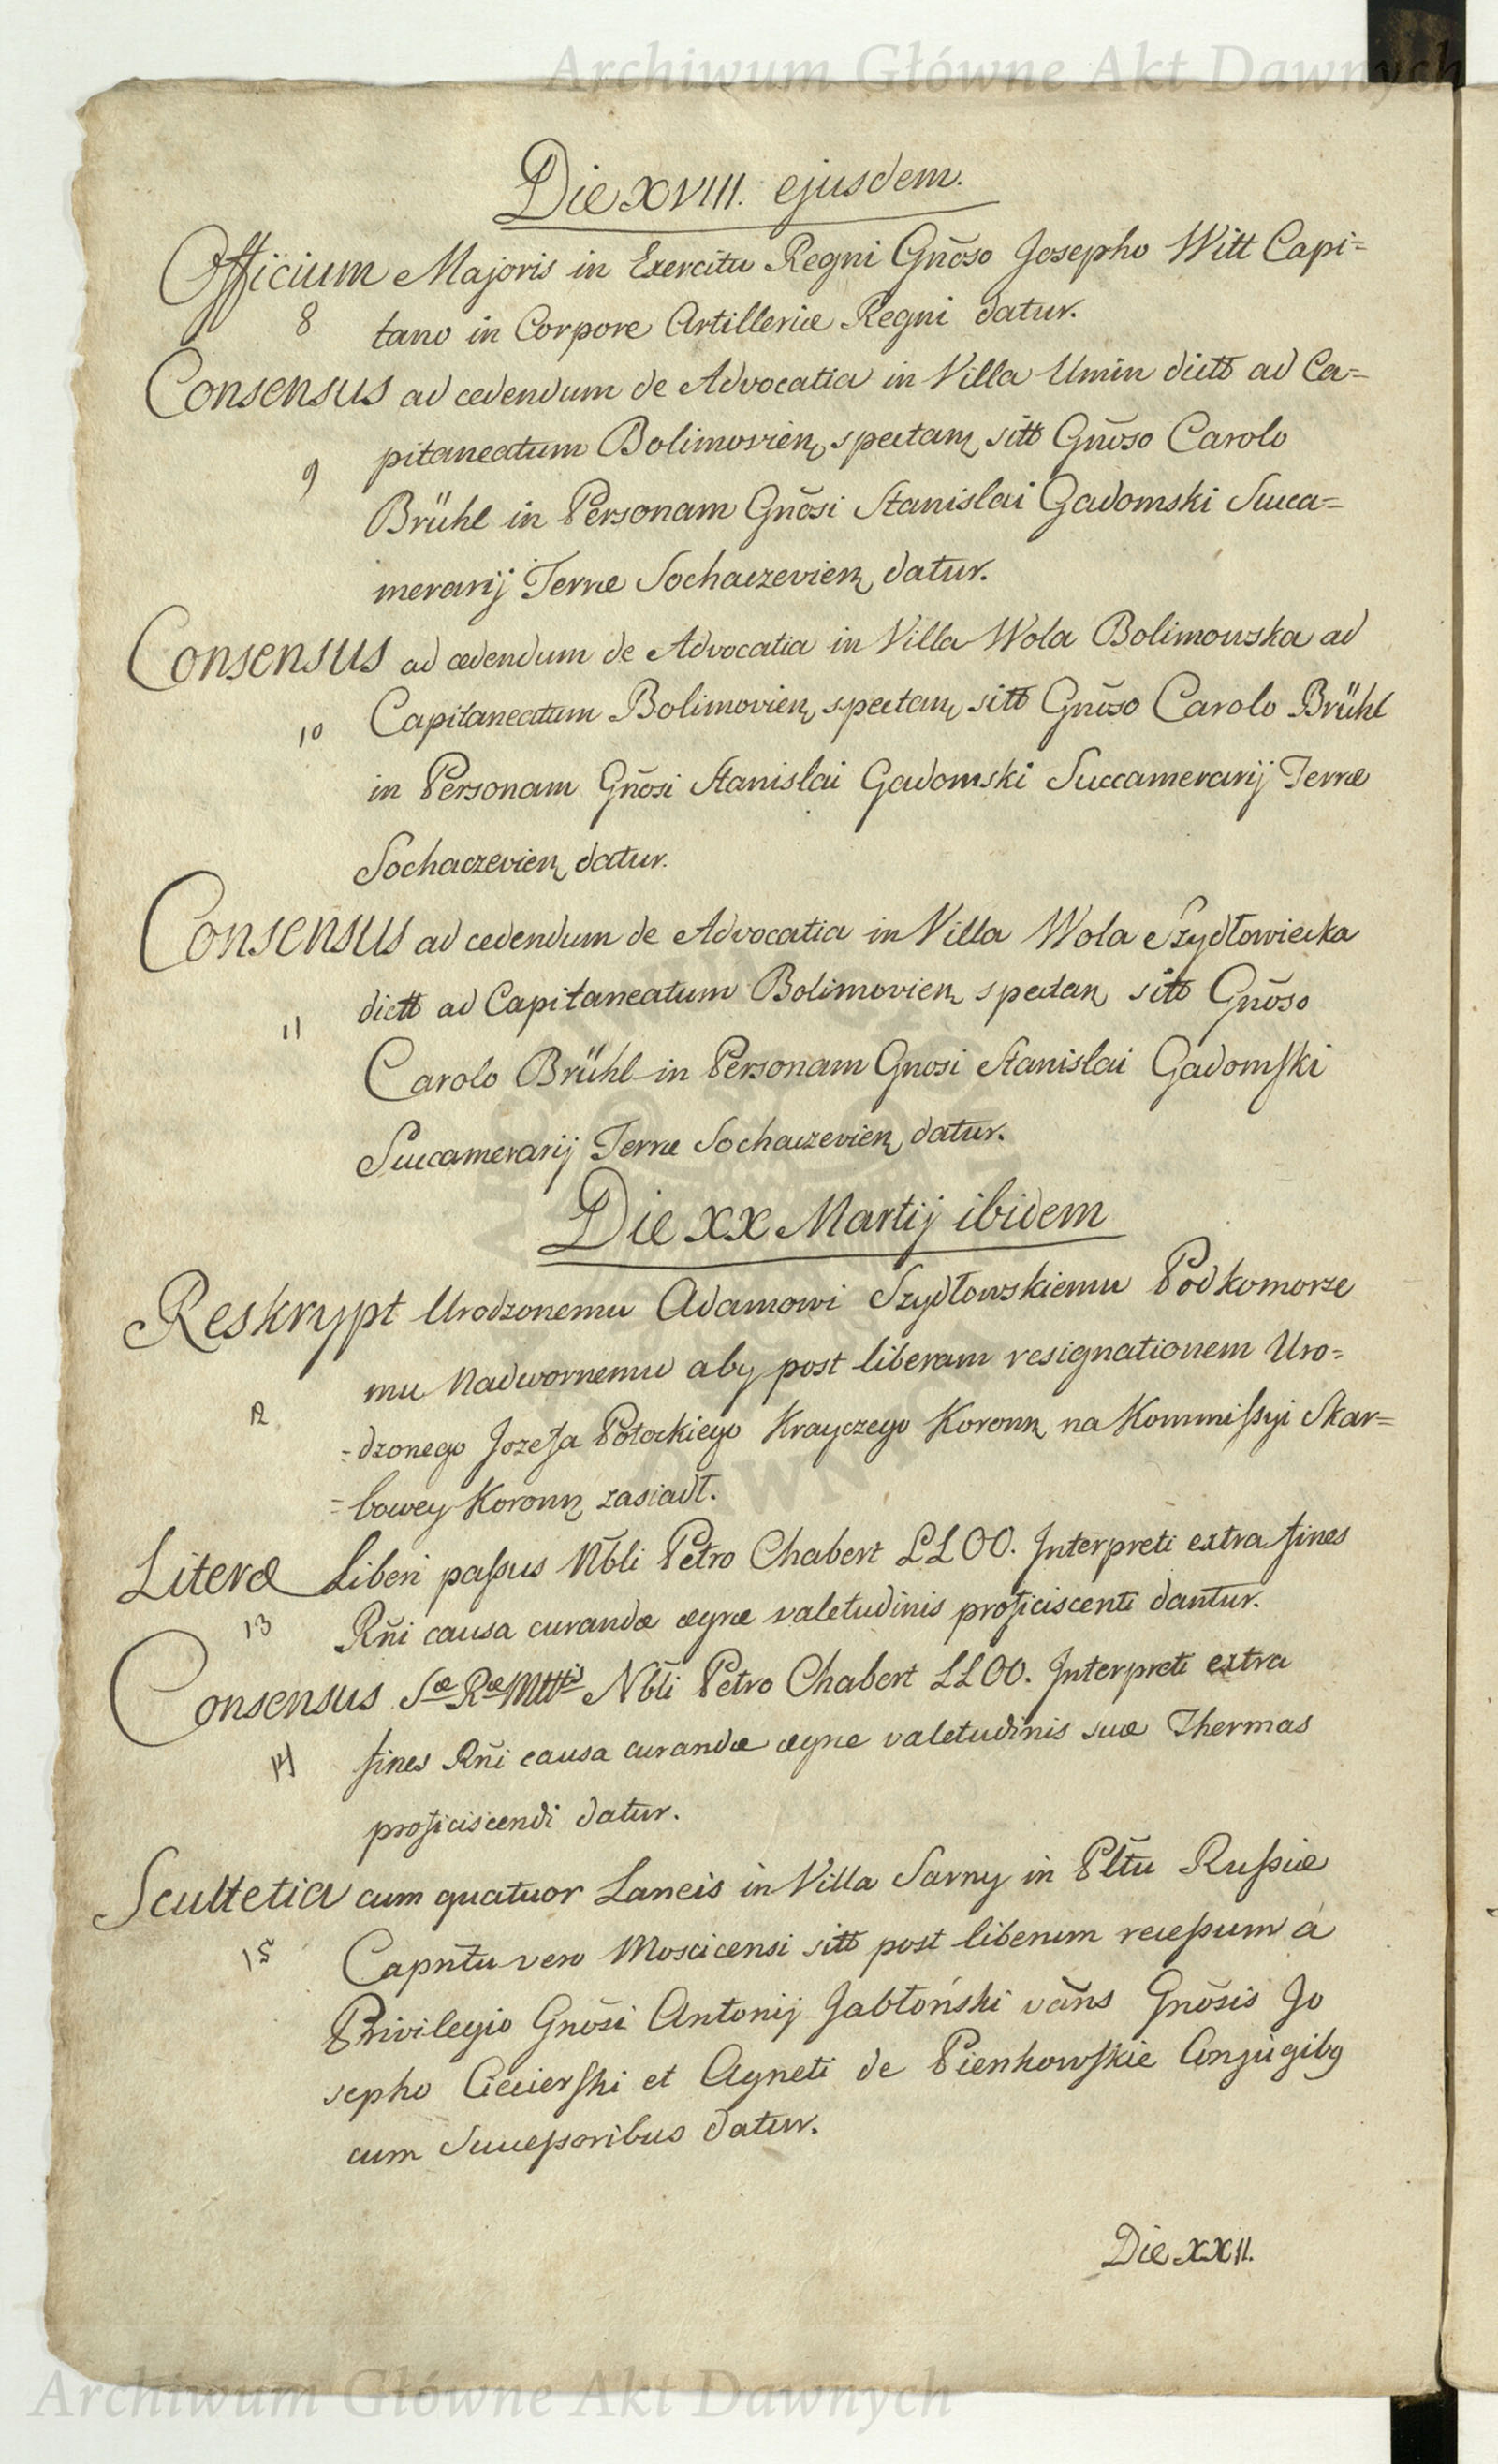 Archiwum Główne Akt Dawnych
Die XVIII. ejusdem.
Officium Majoris in Exercitu Regni Gñoso Josepho Witt Capi=
8 tano in Corpore Artilleriæ Regni datur.
Consensus ad cedendum de Advocatia in Villa Umin dictt ad Ca=
pitaneatum Bolimovien spectan sitt Gñoso Carolo
9
Brühl in Personam Gñosi Stanislai Gadomski Succa=
merarij Terræ Sochaczevien datur.
Consensus ad cedendum de Advocatia in Villa Wola Bolimowska ad
10 Capitaneatum Bolimovien spectan sitt Gñoso Carolo Brühl
in Personam Gñosi Stanislai Gadomski Succamerarij Terræ
Sochaczevien datur.
Consensus ad cedendum de Advocatia in Villa Wola Szydłowiecka
11 dictt ad Capitaneatum Bolimovien spectan sitt Gñoso
Carolo Brühl in Personam Gnosi Stanislai Gadomski
Succamerarij Terræ Sochaczevien datur.
Die XX Martij ibidem
Reskrypt Urodzonemu Adamowi Szydłowskiemu Podkomorze
mu Nadwornemu aby post liberam resignationem Uro=
12 =dzonego Jozefa Potockiego Krayczego Koronn na Kommissyi Skar=
=bowey Koronn zasiadł.
Literæ Liberi passus Nb̃li Petro Chabert LLOO. Interpreti extra fines
13 Rñi causa curandæ ægræ valetudinis proficiscenti dantur.
Consensus Sæ Ræ Mttis Nb̃li Petro Chabert LLOO. Interpreti extra
14 fines Rñi causa curandæ ægræ valetudinis suæ Thermas
proficiscendi datur.
Scultetia cum quatuor Laneis in Villa Sarny in Pltũ Russiæ
15 Capntũ vero Moscicensi sitt post liberum recessum à
Privilegio Gnõsi Antonij Jabłoński vãns Gnõsis Jo
sepho Ciecierski et Agneti de Pienkowskie Conjugibq
cum Successoribus datur.
Die XXII.
Archiwum Główne Akt Dawnych